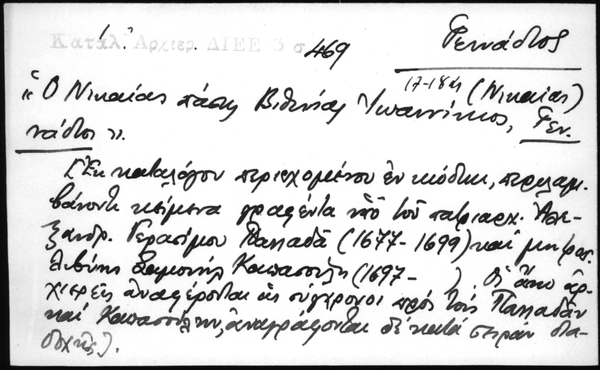 1. Κατάλ. Ἀρχιερ. ΔΙΕΕ 3 σ. 469
Γεννάδιος
17-18 αι (Νικαίας)
«Ὁ Νικαίας πάσης Βιθυνίας Ἰωαννίκιος, Γεν-
νάδιος».
[Ἐκ καταλόγου περιεχομένου ἐν κώδικι, περιλαμ-
βάνοντι κείμενα γραφέντα ὑπὸ τοῦ πατριαρχ. Ἀλε-
ξανδρ. Γερασίμου Παλλαδᾶ (1677-1699) καὶ μητροπ.
Λιβύης Σαμουὴλ Καπασούλη (1697- ). Οἱ ἄνω ἀρ-
χιερεῖς ἀναφέρονται ὡς σύγχρονοι πρὸς τοὺς Παλλαδᾶν
καὶ Καπασούλην, ἀναγράφονται δὲ κατὰ σειρὰν δια-
δοχῆς].